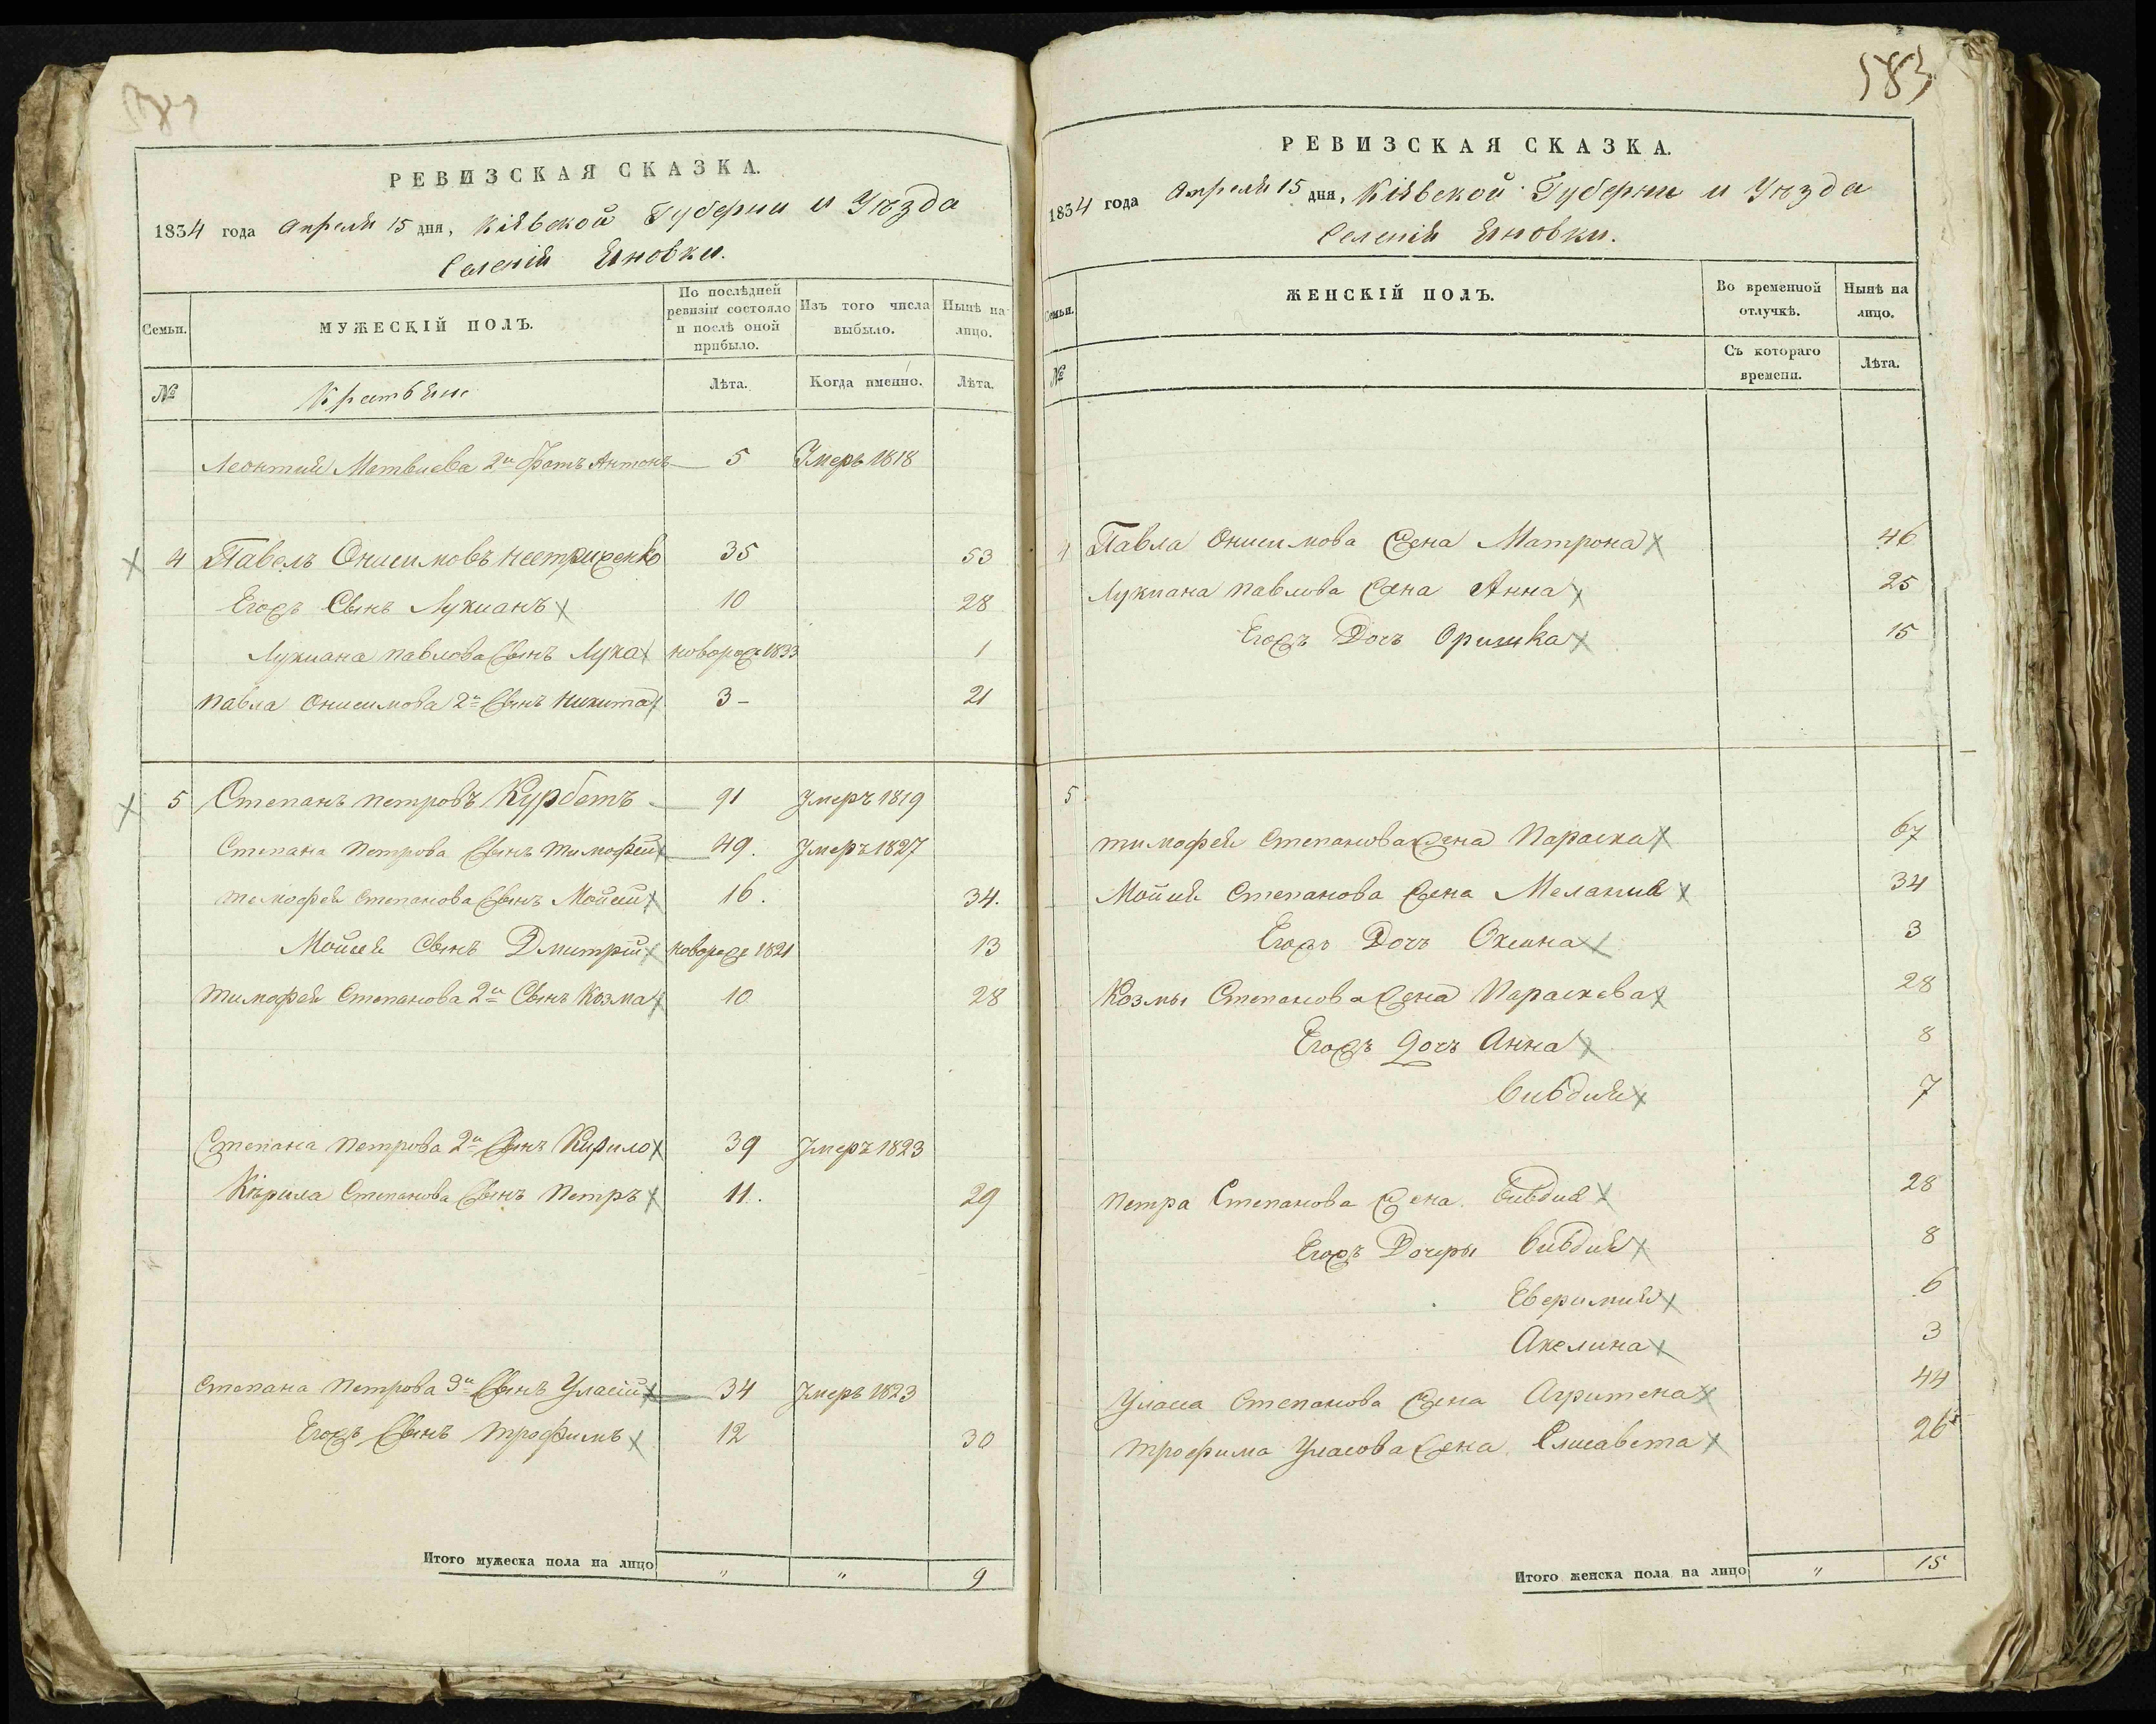 РЕВИЗСКАЯ СКАЗКА.
1834 года Апреля 15 дня, Кіевской Губерніи и Уѣзда
Селенія Яновки.
Семьи.
МУЖЕСКІЙ ПОЛЪ.
По послѣдней ревизіи состояло и послѣ оной прибыло.
Изъ того числа выбыло.
Нынѣ на лицо.
№
Крестьяне
Лѣта.
Когда именно.
Лѣта.
Леонтия Матвиева 2й братъ Антонъ 5 Умеръ 1818
4 Павелъ Онисимовъ Нестриженко 35 53
Егожъ Сынъ Лукианъ 10 28
Лукиана Павлова Сынъ Лука новорож 1833 1
Павла Онисимова 2й Сынъ Никита 3 21
5 Степанъ Петровъ Курбетъ 91 Умеръ 1819
Степана Петрова Сынъ Тимофей 49. Умеръ 1827
Тимофея Степанова Сынъ Мойсей 16. 34.
Мойсея Сынъ Дмитрій новорож 1821 13
Тимофея Степанова 2й Сынъ Козма 10 28
Степана Петрова 2й Сынъ Кирило 39 Умеръ 1823
Кирила Степанова Сынъ Петръ 11. 29
Степана Петрова 3й Сынъ Уласій 34 Умеръ 1823
Егожъ Сынъ Трофимъ 12 30
Итого мужеска пола на лицо " " 9
583
РЕВИЗСКАЯ СКАЗКА.
1834 года Апреля 15 дня, Кіевской Губерніи и Уѣзда
Селенія Яновки.
Семьи.
ЖЕНСКІЙ ПОЛЪ.
Во временной отлучкѣ.
Нынѣ на лицо.
№
Съ котораго времени.
Лѣта.
4 Павла Онисимова жена Матрона 46
Лукиана Павлова жена Анна 25
Егожъ Дочь Оришка 15
5
Тимофея Степанова жена Параска 67
Мойсия Степанова жена Мелания 34
Егожъ Дочь Оксана 3
Козмы Степанова жена Параскева 28
Егожъ дочь Анна 8
Вивдия 7
Петра Степанова жена Вивдия 28
Егожъ Дочеры Вивдия 8
Еверимия 6
Акелина 3
Уласа Степанова жена Агритена 44
Трофима Уласова жена Елисавета 26
Итого женска пола на лицо " 15